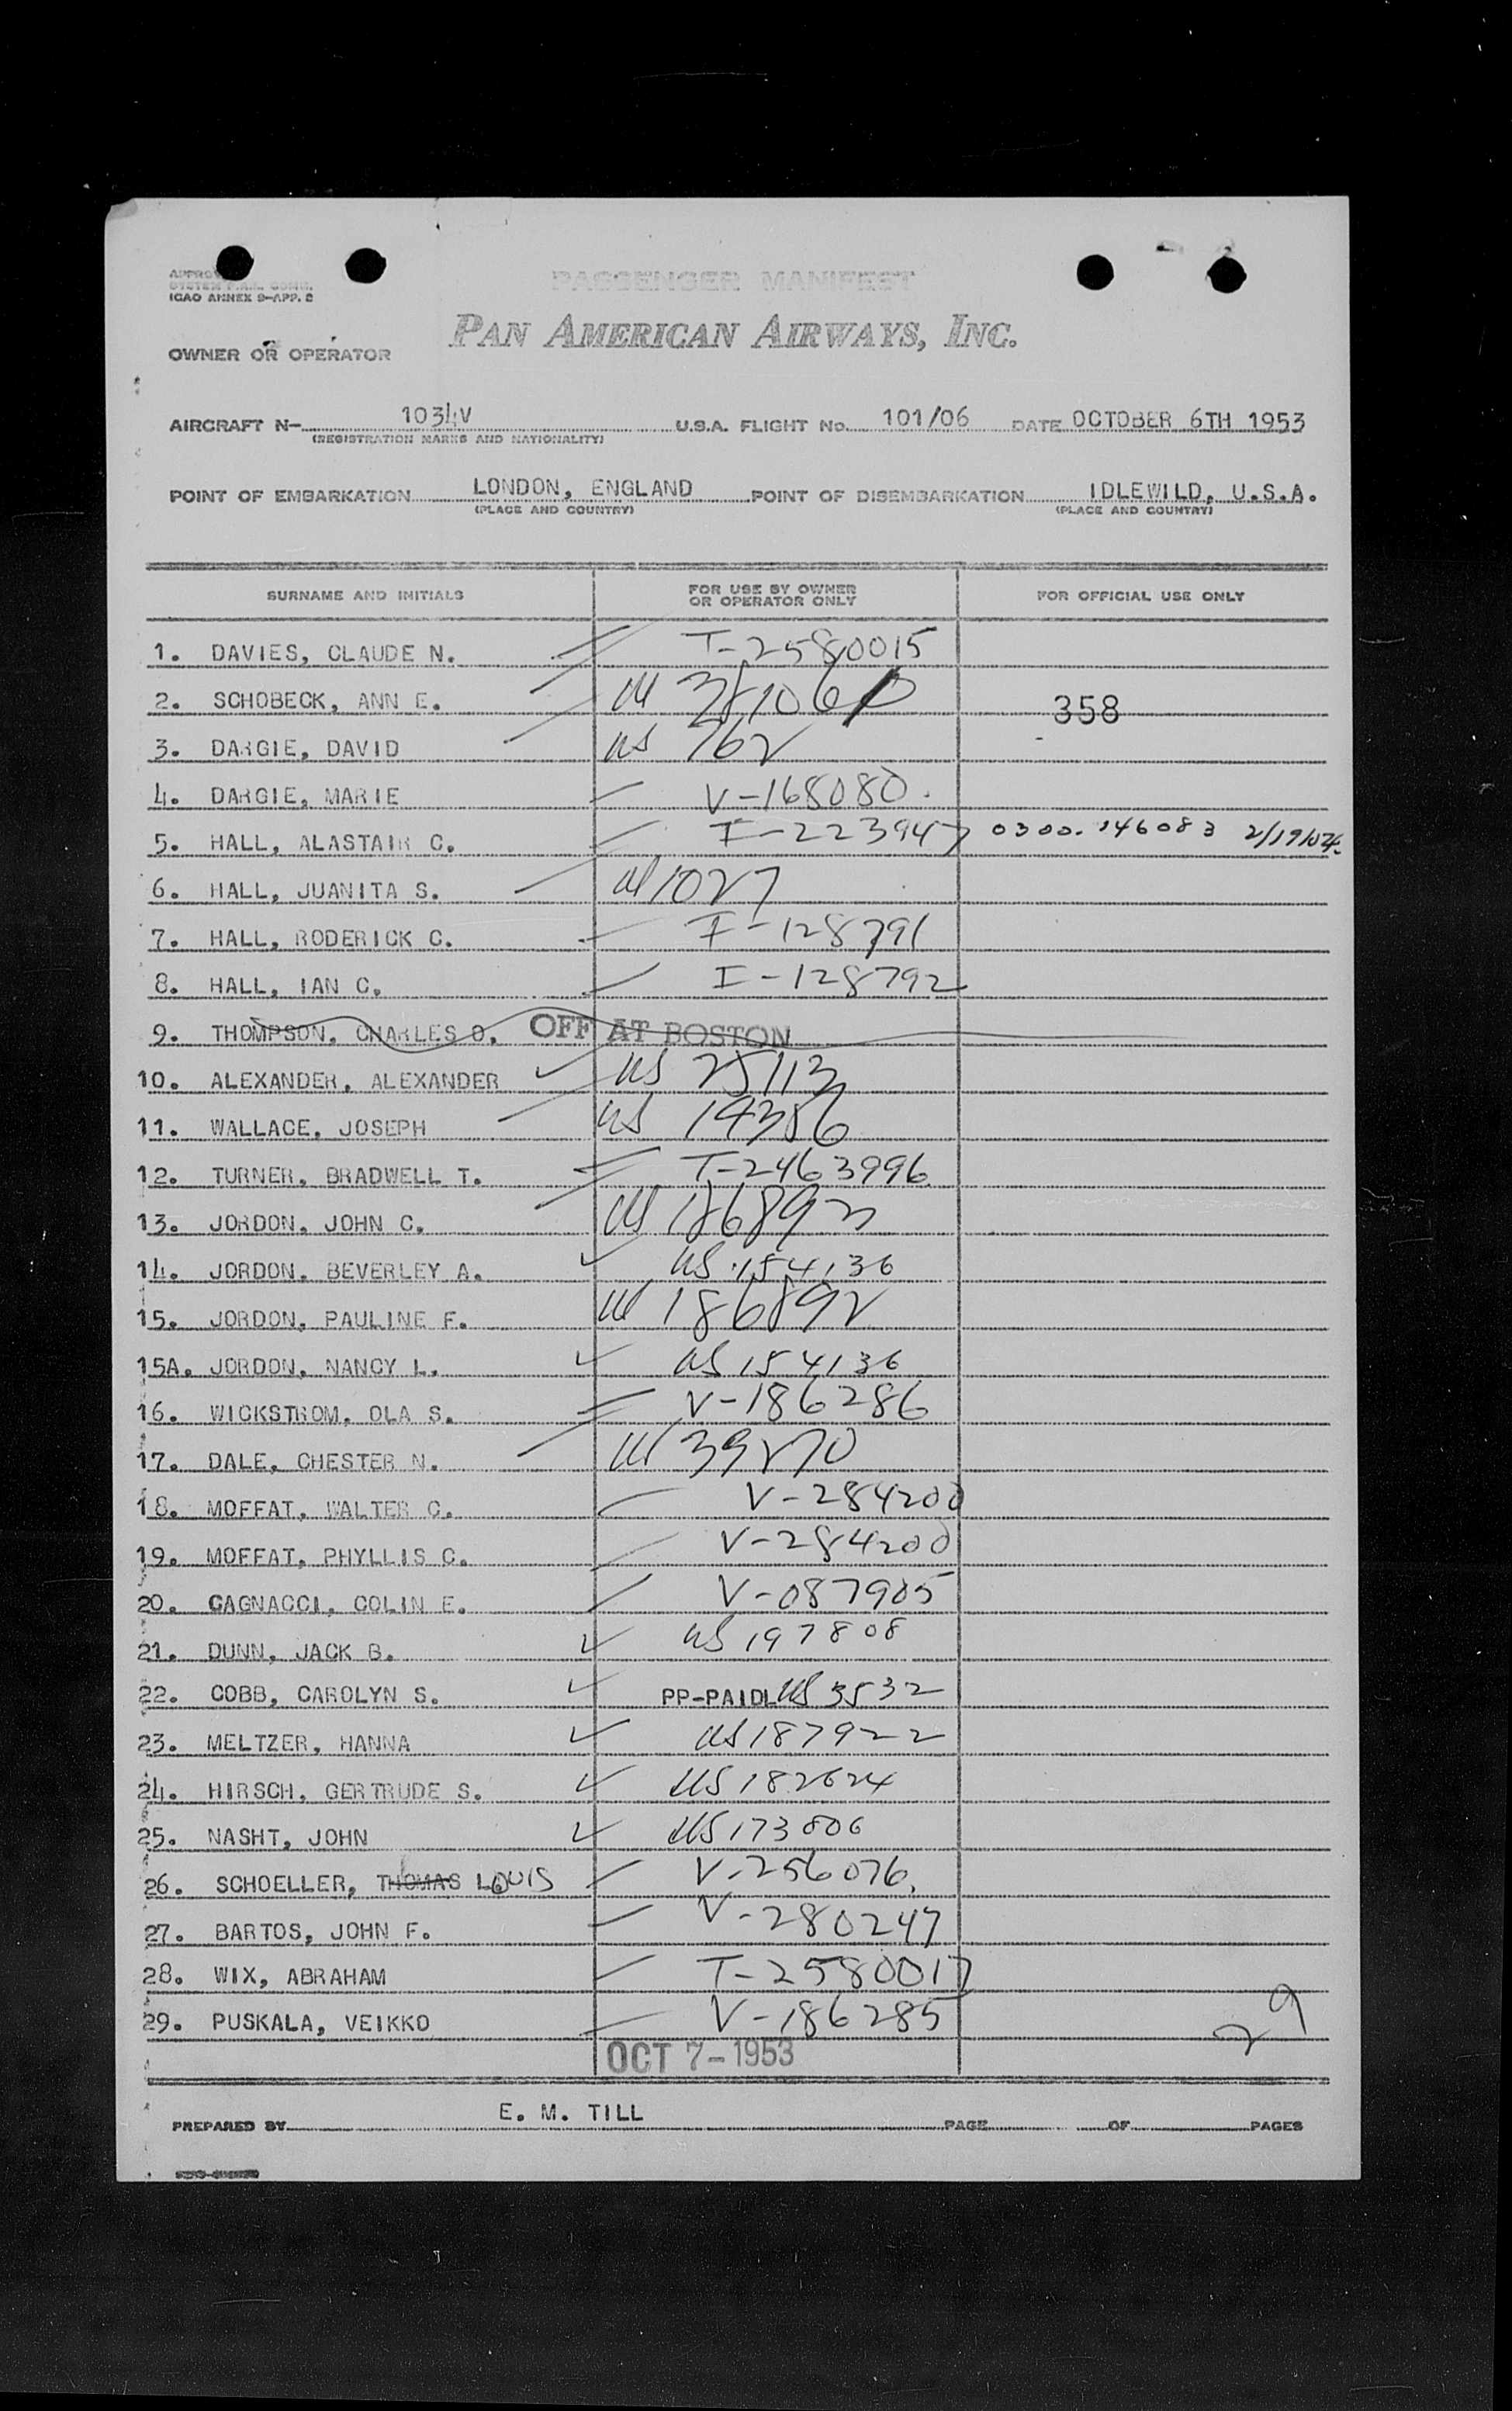 PASSENGER MANIFEST
ICAO ANNEX 9-APP. 2
PAN AMERICAN AIRWAYS, INC.
OWNER OR OPERATOR
AIRCRAFT N- 1034V U.S.A. FLIGHT No. 101/06 DATE OCTOBER 6TH 1953
(REGISTRATION MARKS AND NATIONALITY)
POINT OF EMBARKATION LONDON, ENGLAND POINT OF DISEMBARKATION IDLEWILD, U.S.A.
(PLACE AND COUNTRY) (PLACE AND COUNTRY)
SURNAME AND INITIALS FOR USE BY OWNER OR OPERATOR ONLY FOR OFFICIAL USE ONLY
1. DAVIES, CLAUDE N. T-2580015
2. SCHOBECK, ANN E. 358
3. DARGIE, DAVID US 762
4. DARGIE, MARIE V-168080.
5. HALL, ALASTAIR C. I-223947 0300-146083 2/19/54.
6. HALL, JUANITA S. US 1027
7. HALL, RODERICK C. I-128791
8. HALL, IAN C. I-128792
9. THOMPSON, CHARLES O. OFF AT BOSTON
10. ALEXANDER, ALEXANDER US 25113
11. WALLACE, JOSEPH US 14386
12. TURNER, BRADWELL T. T-2463996
13. JORDON, JOHN C. US 186893
14. JORDON, BEVERLEY A. US 154136
15. JORDON, PAULINE F. US 186892
15A. JORDON, NANCY L. US 154136
16. WICKSTROM, OLA S. V-186286
17. DALE, CHESTER N. US 39270
18. MOFFAT, WALTER C. V-284200
19. MOFFAT, PHYLLIS C. V-284200
20. CAGNACCI, COLIN E. V-087905
21. DUNN, JACK B. US 197808
22. COBB, CAROLYN S. PP-PAIDL US 3532
23. MELTZER, HANNA US 187922
24. HIRSCH, GERTRUDE S. US 182624
25. NASHT, JOHN US 173806
26. SCHOELLER, THOMAS LOUIS V-256076.
27. BARTOS, JOHN F. V-280247
28. WIX, ABRAHAM T-2580017
29. PUSKALA, VEIKKO V-186285 29
OCT 7-1953
PREPARED BY E. M. TILL PAGE OF PAGES